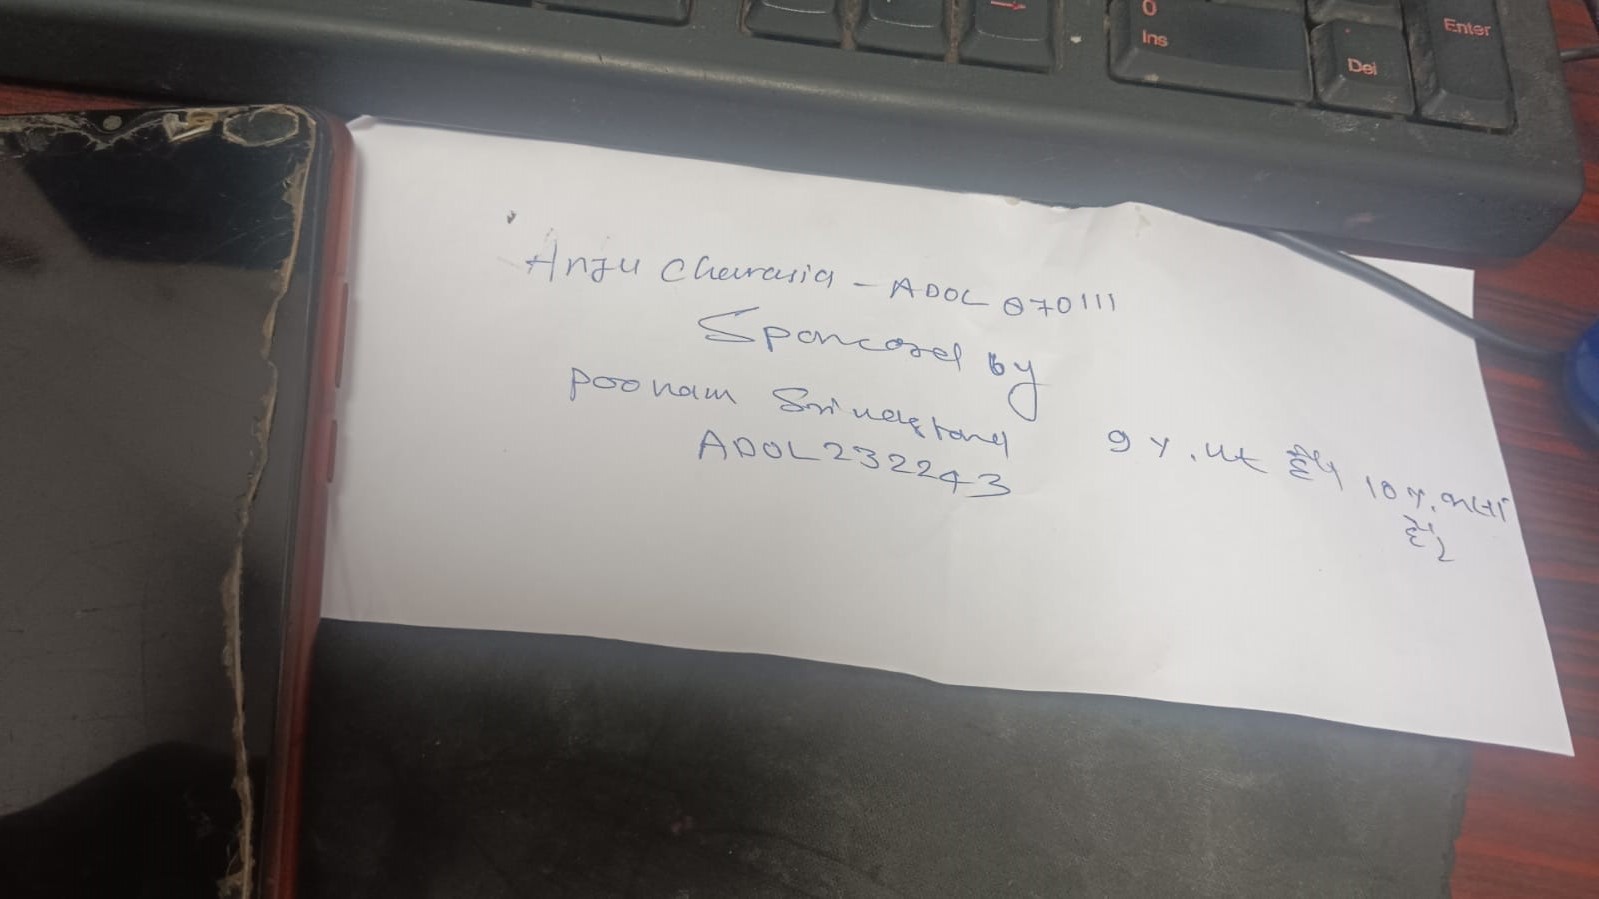 0
Ins
Del
Enter
Anju Chaurasia - ADOL 070111
Sponcored by
Poonam Srivastava
ADOL232243
9 %. पर है 10 %. करना
है